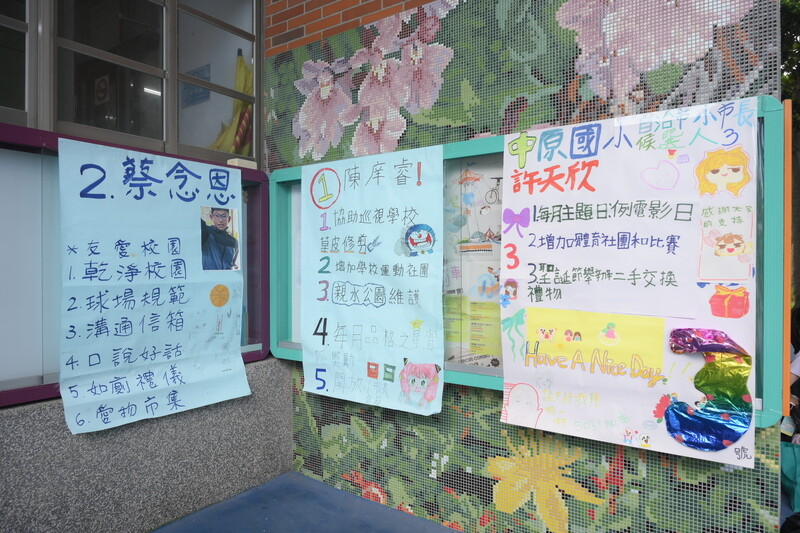 2.蔡念恩
*友愛校園
1.乾淨校園
2.球場規範
3.溝通信箱
4.口說好話
5.如廁禮儀
6.愛物市集
1 陳庠睿!
1.協助巡視學校
草皮修剪
2 增加學校運動社團
3.親水公園維護
4.每月品格之星
5.
中原國小自治市小市長
候選人3
許天欣
1.每月主題日:例電影日
3 2.增加體育社團和比賽
3.聖誕節舉辦二手交換
禮物
感謝大家
的支持
Have A Nice Day!!
3
號